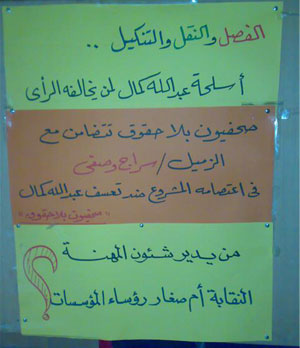 الفصل والنقل والتنكيل ..
أسلحة عبدالله كمال لمن يخالفه الرأى
صحفيون بلا حقوق تتضامن مع
الزميل / سراج وصفى
فى اعتصامه المشروع ضد تعسف عبدالله كمال
"صحفيون بلا حقوق"
من يدير شئون المهنة
النقابة أم صغار رؤساء المؤسسات
؟